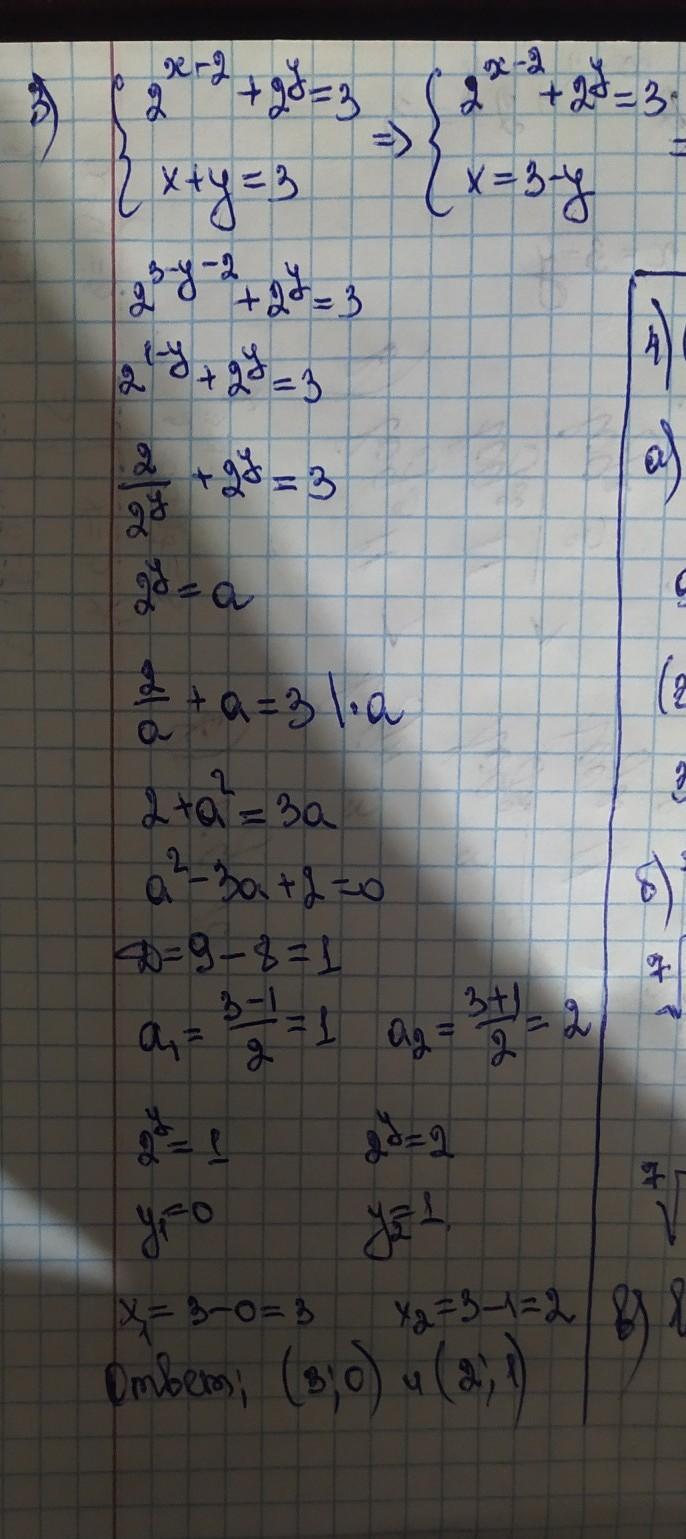 3) { 2^{x-2} + 2^y = 3 => { 2^{x-2} + 2^y = 3 =
x + y = 3 x = 3 - y
2^{3-y-2} + 2^y = 3
2^{1-y} + 2^y = 3
2/2^y + 2^y = 3
2^y = a
2/a + a = 3 |·a
2 + a^2 = 3a
a^2 - 3a + 2 = 0
D = 9 - 8 = 1
a_1 = (3-1)/2 = 1 a_2 = (3+1)/2 = 2
2^y = 1 2^y = 2
y_1 = 0 y_2 = 1
x_1 = 3 - 0 = 3 x_2 = 3 - 1 = 2
Ответ: (3; 0) и (2; 1)
4) (
а)
(2
б)
7
7
в)